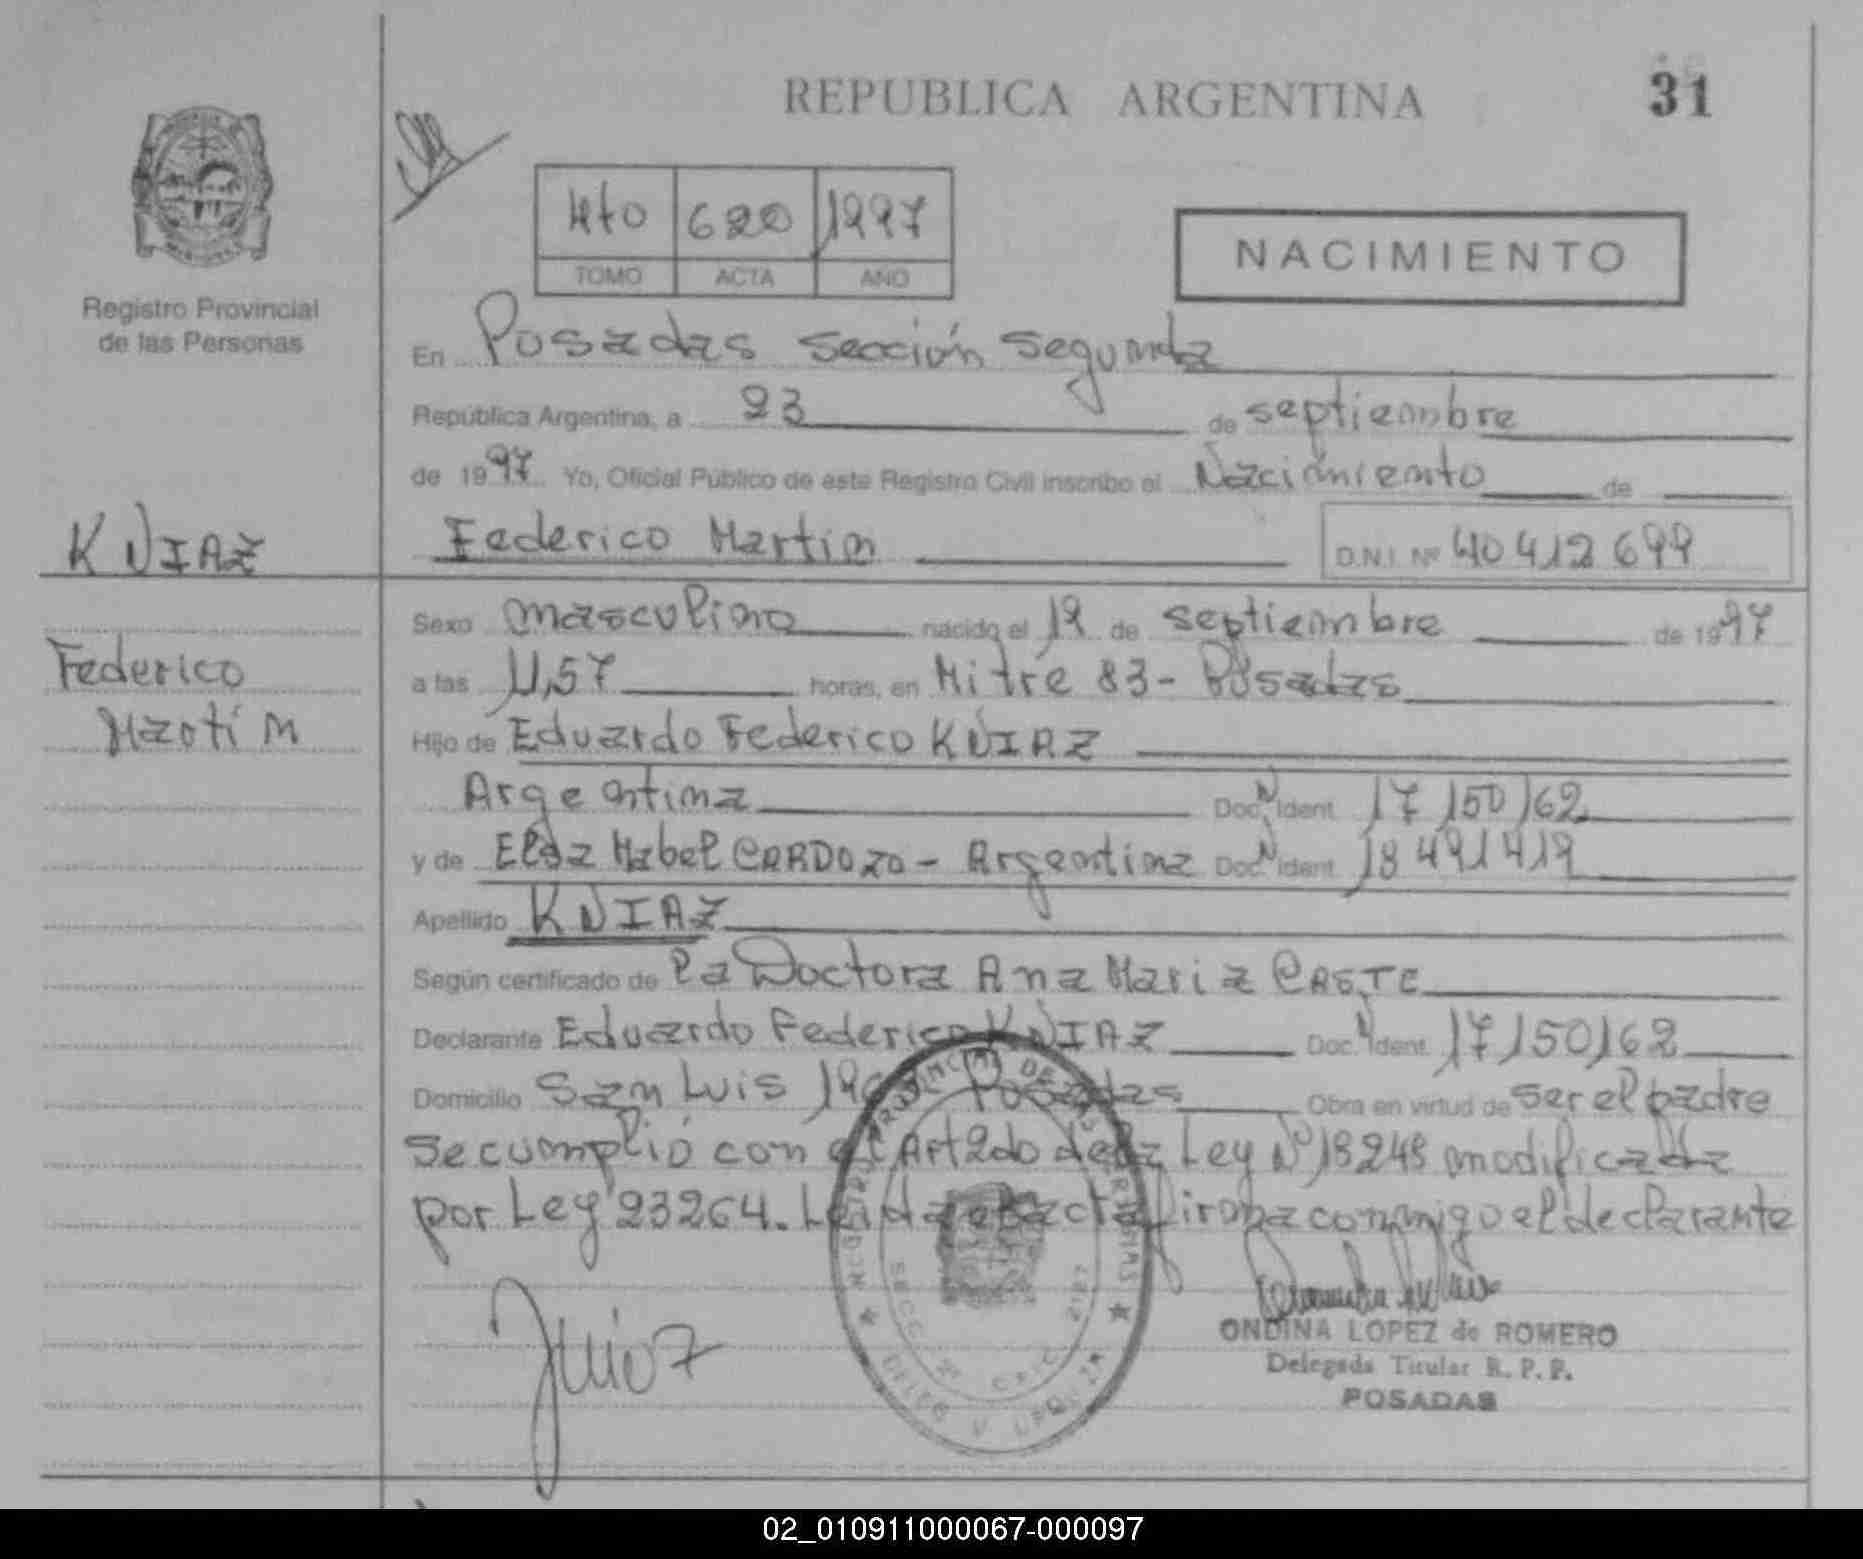 REPUBLICA ARGENTINA
31
4to 620 1997
TOMO ACTA AÑO
NACIMIENTO
Registro Provincial
de las Personas
En Posadas sección segunda
República Argentina, a 23 de septiembre
de 1997 Yo, Oficial Público de este Registro Civil inscribo el Nacimiento de
KNIAZ
Federico Martin D.N.I. Nº 40412699
Sexo masculino nacido el 19 de septiembre de 1997
Federico
Martin
a las 11,57 horas, en Mitre 83 - Posadas
Hijo de Eduardo Federico KNIAZ
Argentina Doc. N Ident. 17150162
y de Elsa Mabel CARDOZO - Argentina Doc. N Ident. 18491419
Apellido KNIAZ
Según certificado de la Doctora Ana Maria
Declarante Eduardo Federico KNIAZ Doc. N Ident. 17150162
Domicilio San Luis Posadas Obra en virtud de ser el padre
se cumplió con el Art 2do de la Ley Nº 18248 modificada
por Ley 23264. Leida el acta firma conmigo el declarante
REGISTRO PROVINCIAL DE LAS PERSONAS
ONDINA LOPEZ de ROMERO
Delegada Titular R. P. P.
POSADAS
02_010911000067-000097